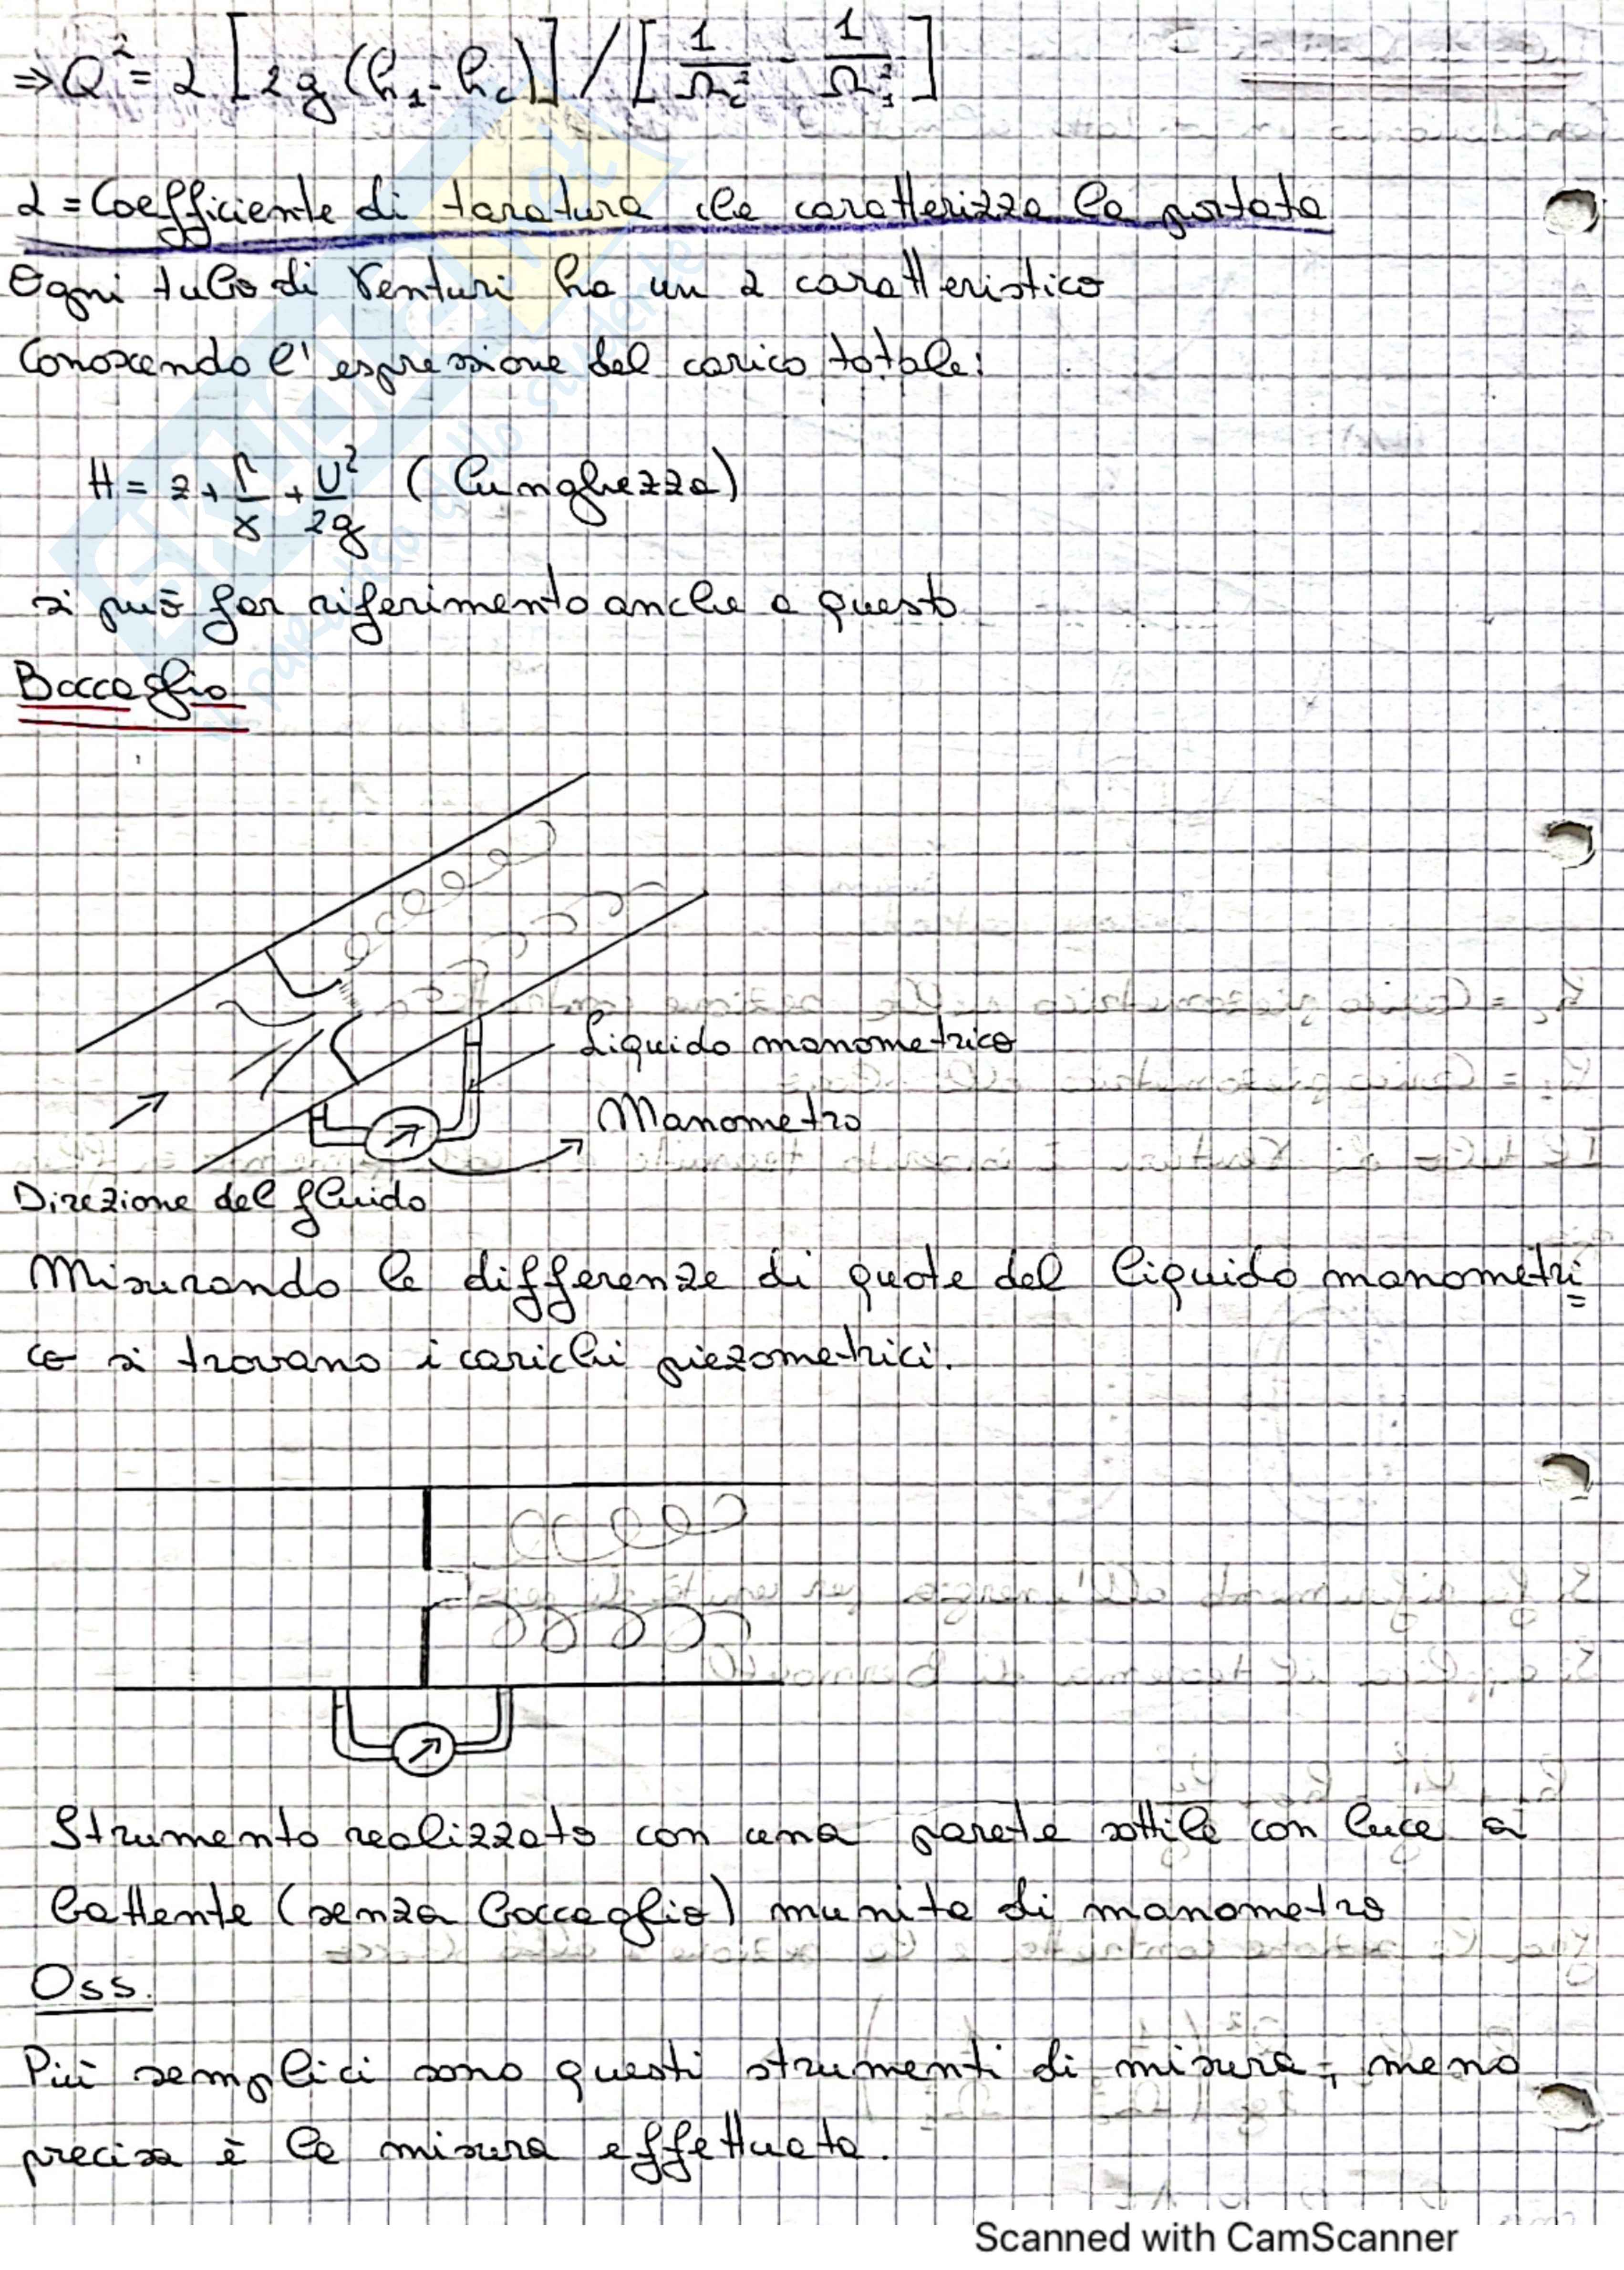 ⇒ Q² = α [2g (h₁ - h_c)] / [1/Ω_c² - 1/Ω₁²]
α = Coefficiente di taratura che caratterizza la portata
Ogni tubo di Venturi ha un α caratteristico
Conoscendo l'espressione del carico totale:
H = z + p/γ + U²/2g (lunghezza)
si può far riferimento anche a questo
Boccaglio
Liquido manometrico
Manometro
Direzione del fluido
Misurando le differenze di quote del liquido manometri=
co si trovano i carichi piezometrici.
Strumento realizzato con una parete sottile con luce a
battente (senza boccaglio) munita di manometro
Oss.
Più semplici sono questi strumenti di misura, meno
precisa è la misura effettuata.
Scanned with CamScanner